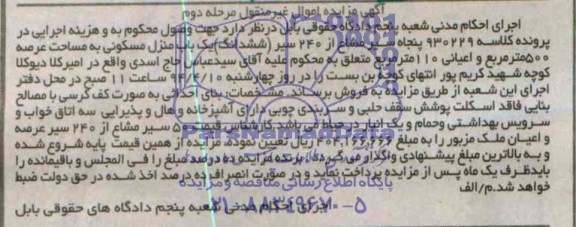 آگهی مزایده اموال غیرمنقول مرحله دوم
اجرای احکام مدنی شعبه پنجم دادگاه حقوقی بابل درنظر دارد جهت وصول محکوم به و هزینه اجرایی در
پرونده کلاسه ۹۳۰۲۲۹ پنجاه سیر مشاع از ۲۴۰ سیر (ششدانگ) یک باب منزل مسکونی به مساحت عرصه
۵۰۰مترمربع و اعیانی ۱۱۰مترمربع متعلق به محکوم علیه آقای سیدعباس حاج اسدی واقع در امیرکلا دیوکلا
کوچه شهید کریم پور انتهای کوچه بن بست را در روز چهارشنبه ۹۴/۴/۱۰ ساعت ۱۱ صبح در محل دفتر
اجرای این شعبه از طریق مزایده به فروش برساند. مشخصات: بنای احداثی به صورت کف کرسی با مصالح
بنایی فاقد اسکلت پوشش سقف حلبی و سربندی چوبی دارای آشپزخانه و هال و پذیرایی سه اتاق خواب و
سرویس بهداشتی وحمام و یک انبار در حیاط می باشد کارشناس قیمت ۵۰ سیر مشاع از ۲۴۰ سیر عرصه
و اعیان ملک مزبور را به مبلغ ۴۰۴,۱۶۶,۶۶۶ ریال تعیین نموده، مزایده از همین قیمت پایه شروع شده
و به بالاترین مبلغ پیشنهادی واگذار می گردد. برنده مزایده ده درصد مبلغ را فی المجلس و باقیمانده را
بایدظرف یک ماه پس از مزایده پرداخت نماید و در صورت انصراف ده درصد اخذ شده در حق دولت ضبط
خواهد شد.م/الف
پایگاه اطلاع رسانی مناقصه و مزایده
اجرای احکام مدنی شعبه پنجم دادگاه های حقوقی بابل
۰۲۱-۸۸۳۴۹۶۷۰-۵
ParsNamadData